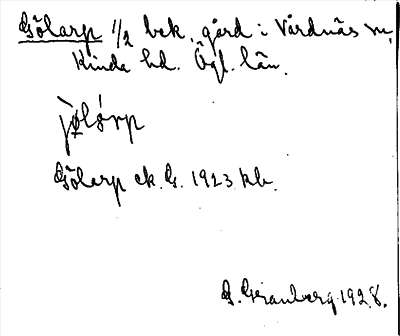 Gölarp 1/2 bek. gård i Vårdnäs sn,
Kinda hd. Ögl. län.
jølárp
Gölarp ek. G. 1923 kb.
G. Granberg 1928.